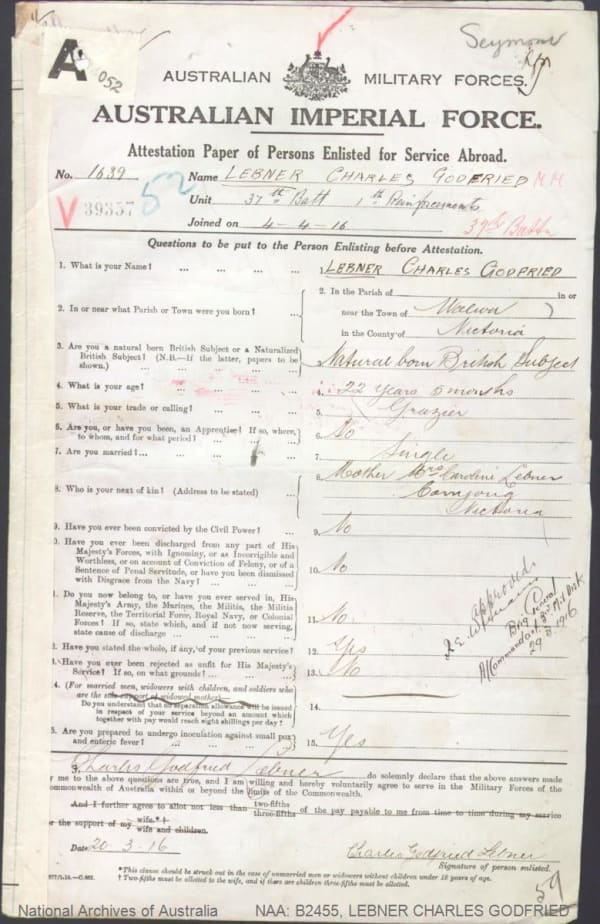 Seymour
A
052
AUSTRALIAN MILITARY FORCES.
AUSTRALIAN IMPERIAL FORCE.
Attestation Paper of Persons Enlisted for Service Abroad.
No. 1639 Name LEBNER CHARLES GODFRIED MM
52
Unit 37th Batt 1th Reinforcements
V 39357
Joined on 4-4-16 37th Battn
Questions to be put to the Person Enlisting before Attestation.
1. What is your Name? ... ... ... 1. LEBNER CHARLES GODFRIED
2. In or near what Parish or Town were you born? ... 2. In the Parish of in or
near the Town of
in the County of Victoria
3. Are you a natural born British Subject or a Naturalized
British Subject? (N.B.—If the latter, papers to be
shown.) ... Natural born British Subject
4. What is your age? ... 4. 22 years 6 months
5. What is your trade or calling? ... 5. Grazier
6. Are you, or have you been, an Apprentice? If so, where,
to whom, and for what period? ... 6. No
7. Are you married? ... 7. Single
8. Who is your next of kin? (Address to be stated) ... 8. Mother Mrs Caroline Lebner
Victoria
9. Have you ever been convicted by the Civil Power? ... 9. No
0. Have you ever been discharged from any part of His
Majesty's Forces, with Ignominy, or as Incorrigible and
Worthless, or on account of Conviction of Felony, or of a
Sentence of Penal Servitude, or have you been dismissed
with Disgrace from the Navy? ... 10. No
1. Do you now belong to, or have you ever served in, His
Majesty's Army, the Marines, the Militia, the Militia
Reserve, the Territorial Force, Royal Navy, or Colonial
Forces? If so, state which, and if not now serving,
state cause of discharge ... 11. No
2. Have you stated the whole, if any, of your previous service? 12. Yes
3. Have you ever been rejected as unfit for His Majesty's
Service? If so, on what grounds? ... 13. No
approved
Brig General
Commandant 3rd Mil Dist
29.3.1916
4. (For married men, widowers with children, and soldiers who
are the sole support of widowed mother)
Do you understand that no separation allowance will be issued
in respect of your service beyond an amount which
together with pay would reach eight shillings per day? ... 14.
5. Are you prepared to undergo inoculation against small pox
and enteric fever? ... 15. Yes
I, Charles Godfried Lebner do solemnly declare that the above answers made
y me to the above questions are true, and I am willing and hereby voluntarily agree to serve in the Military Forces of the
ommonwealth of Australia within or beyond the limits of the Commonwealth.
And I further agree to allot not less than two-fifths three-fifths of the pay payable to me from time to time during my service
or the support of my wife.*† wife and children.
Date 20-3-16 Charles Godfried Lebner
Signature of person enlisted.
*This clause should be struck out in the case of unmarried men or widowers without children under 18 years of age.
† Two-fifths must be allotted to the wife, and if there are children three-fifths must be allotted.
59
National Archives of Australia NAA: B2455, LEBNER CHARLES GODFRIED